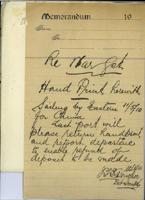 Memorandum 19
Re Mar Gek
Hand Print herewith
Sailing by Eastern 11/5/10
for China
Last port will
please return handprint
and report departure
to enable refund of
deposit to be made